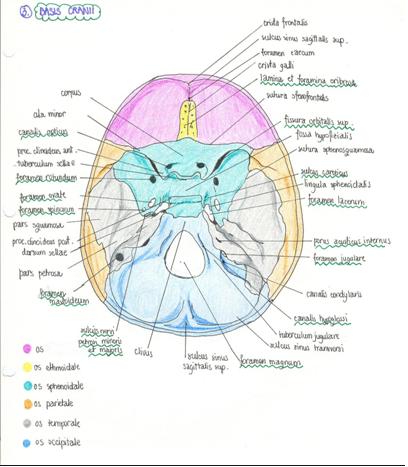 3. BASIS CRANII
crista frontalis
sulcus sinus sagittalis sup.
foramen caecum
crista galli
lamina et foramina cribrosa
sutura sfenofrontalis
fissura orbitalis sup.
fossa hypofisialis
sutura sphenosquamosa
sulcus caroticus
lingula sphenoidalis
foramen lacerum
porus acusticus internus
foramen jugulare
canalis condylaris
canalis hypoglossi
tuberculum jugulare
sulcus sinus transversi
foramen magnum
sulcus sinus
sagittalis sup.
clivus
sulcus nervi
petrosi minoris
et majoris
foramen
mastoideum
pars petrosa
dorsum sellae
proc. clinoideus post.
pars squamosa
foramen spinosum
foramen ovale
foramen rotundum
tuberculum sellae
proc. clinoideus ant.
canalis opticus
ala minor
corpus
os
os ethmoidale
os sphenoidale
os parietale
os temporale
os occipitale